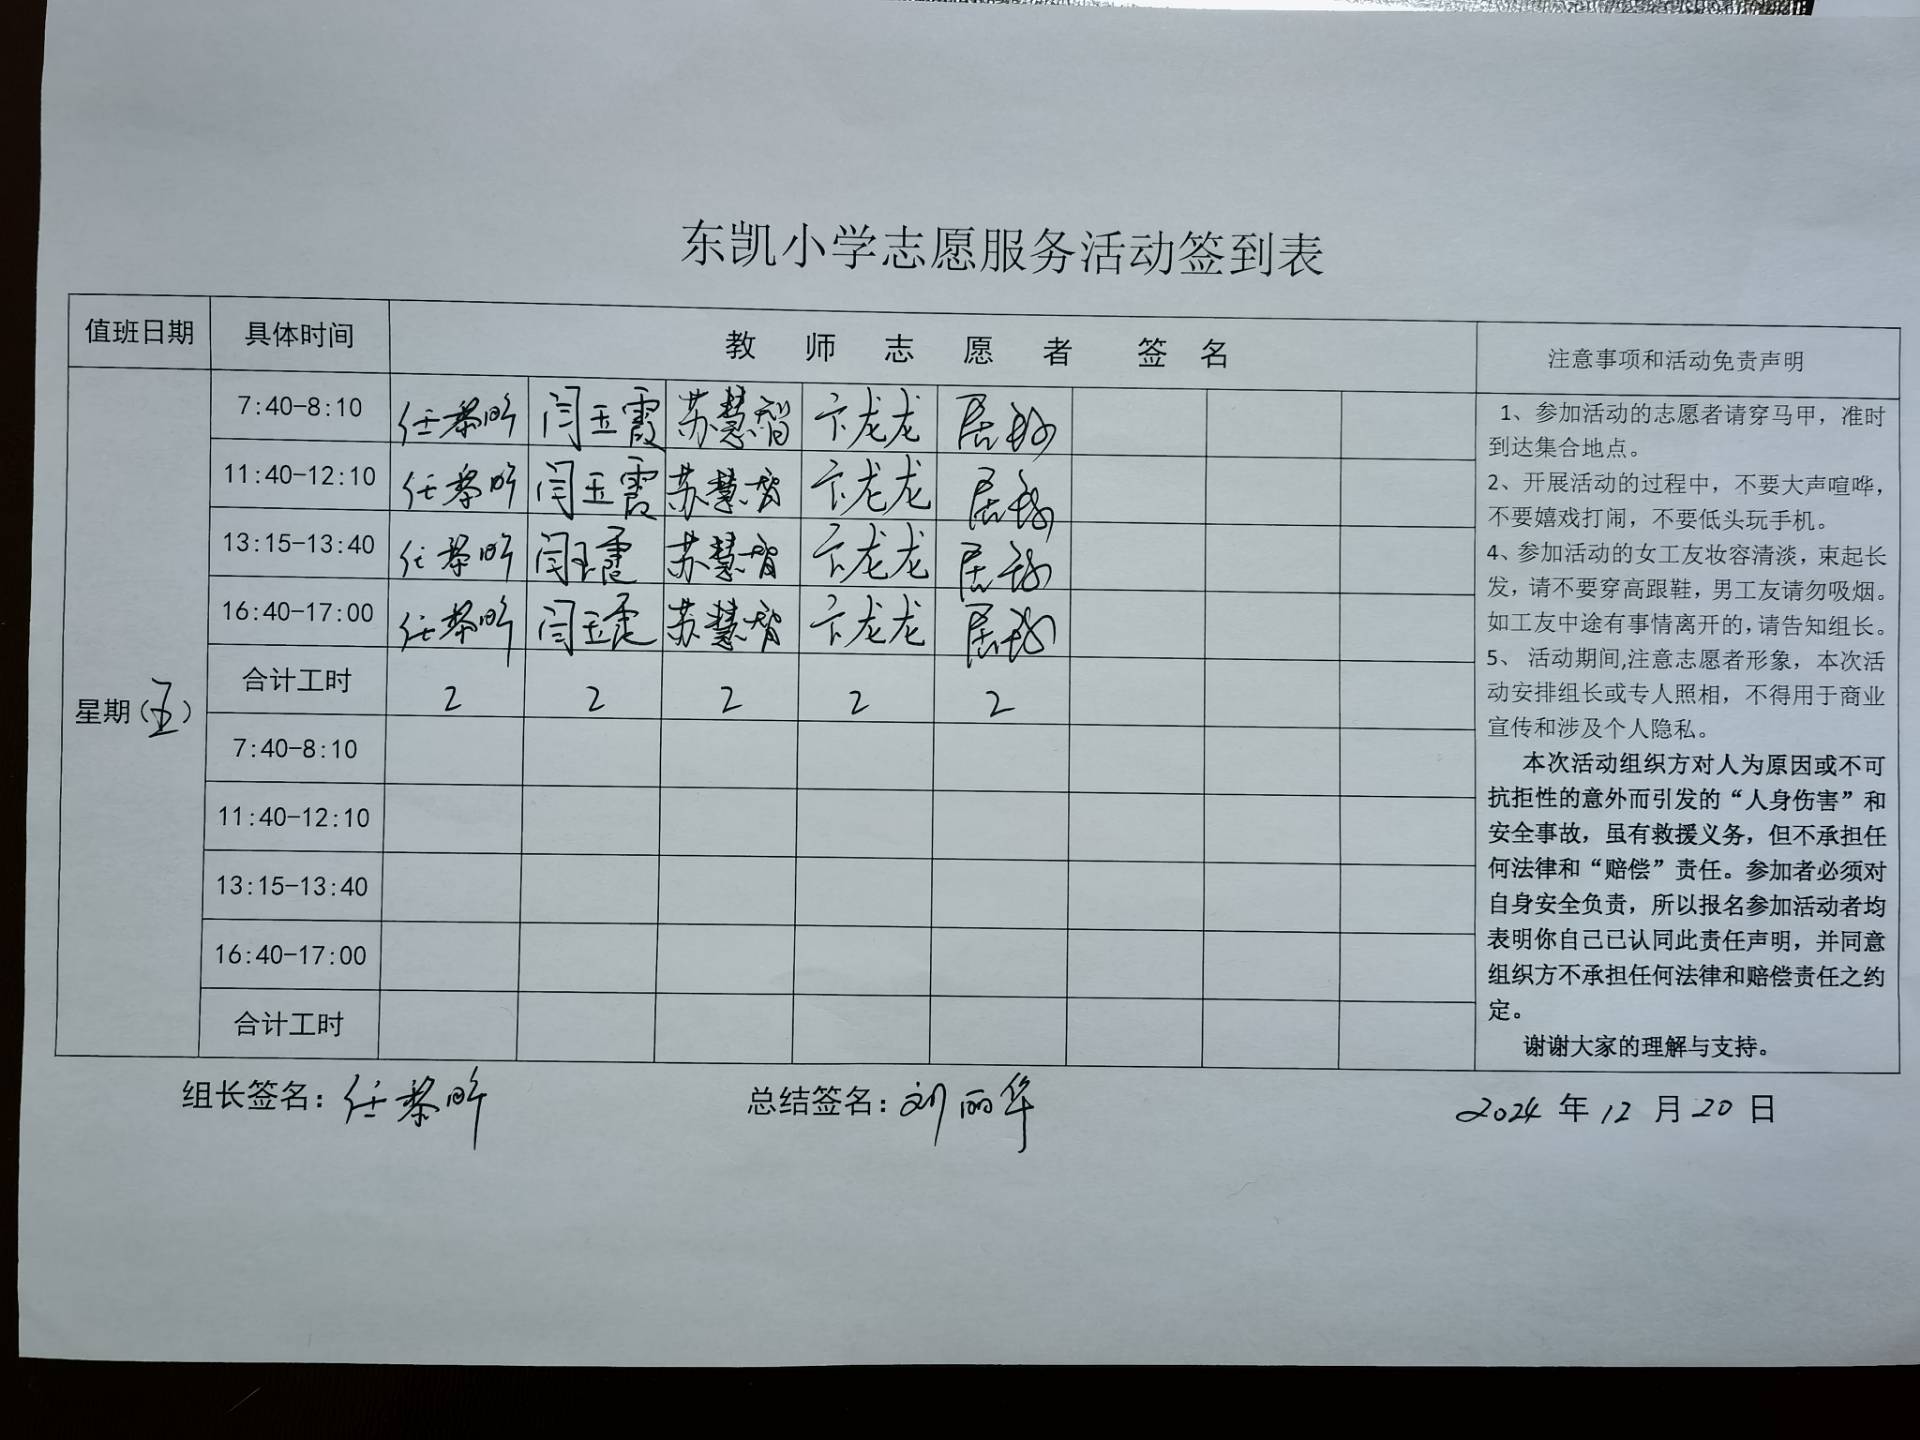 东凯小学志愿服务活动签到表
值班日期 具体时间 教师志愿者签名 注意事项和活动免责声明
星期(五)
7:40-8:10 任黎昕 闫玉霞 苏慧智 卞龙龙 居
11:40-12:10 任黎昕 闫玉霞 苏慧智 卞龙龙 居
13:15-13:40 任黎昕 闫玉霞 苏慧智 卞龙龙 居
16:40-17:00 任黎昕 闫玉霞 苏慧智 卞龙龙 居
合计工时 2 2 2 2 2
7:40-8:10
11:40-12:10
13:15-13:40
16:40-17:00
合计工时
1、参加活动的志愿者请穿马甲，准时
到达集合地点。
2、开展活动的过程中，不要大声喧哗，
不要嬉戏打闹，不要低头玩手机。
4、参加活动的女工友妆容清淡，束起长
发，请不要穿高跟鞋，男工友请勿吸烟。
如工友中途有事情离开的，请告知组长。
5、 活动期间,注意志愿者形象，本次活
动安排组长或专人照相，不得用于商业
宣传和涉及个人隐私。
本次活动组织方对人为原因或不可
抗拒性的意外而引发的“人身伤害”和
安全事故，虽有救援义务，但不承担任
何法律和“赔偿”责任。参加者必须对
自身安全负责，所以报名参加活动者均
表明你自己已认同此责任声明，并同意
组织方不承担任何法律和赔偿责任之约
定。
谢谢大家的理解与支持。
组长签名：任黎昕 总结签名：刘丽华 2024 年 12 月 20 日